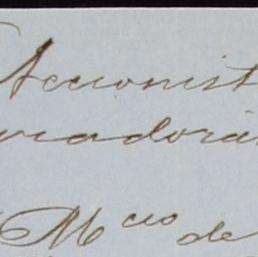 Accionist
viadoria
M cio de